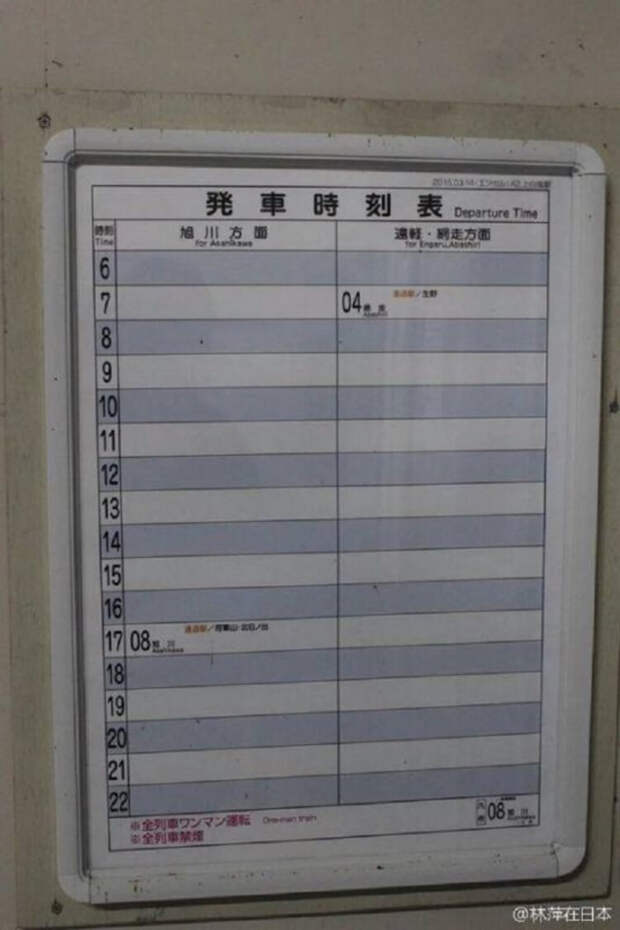 発車時刻表 Departure Time
時刻 旭川方面 遠軽・網走方面
Time for Asahikawa for Engaru,Abashiri
6
7 04 通過駅／生野
Abashiri
8
9
10
11
12
13
14
15
16
17 08 旭川 通過駅／将軍山・北日ノ出
Asahikawa
18
19
20
21
22
※全列車ワンマン運転 One-man train
※全列車禁煙
凡例 08 旭川
@林萍在日本